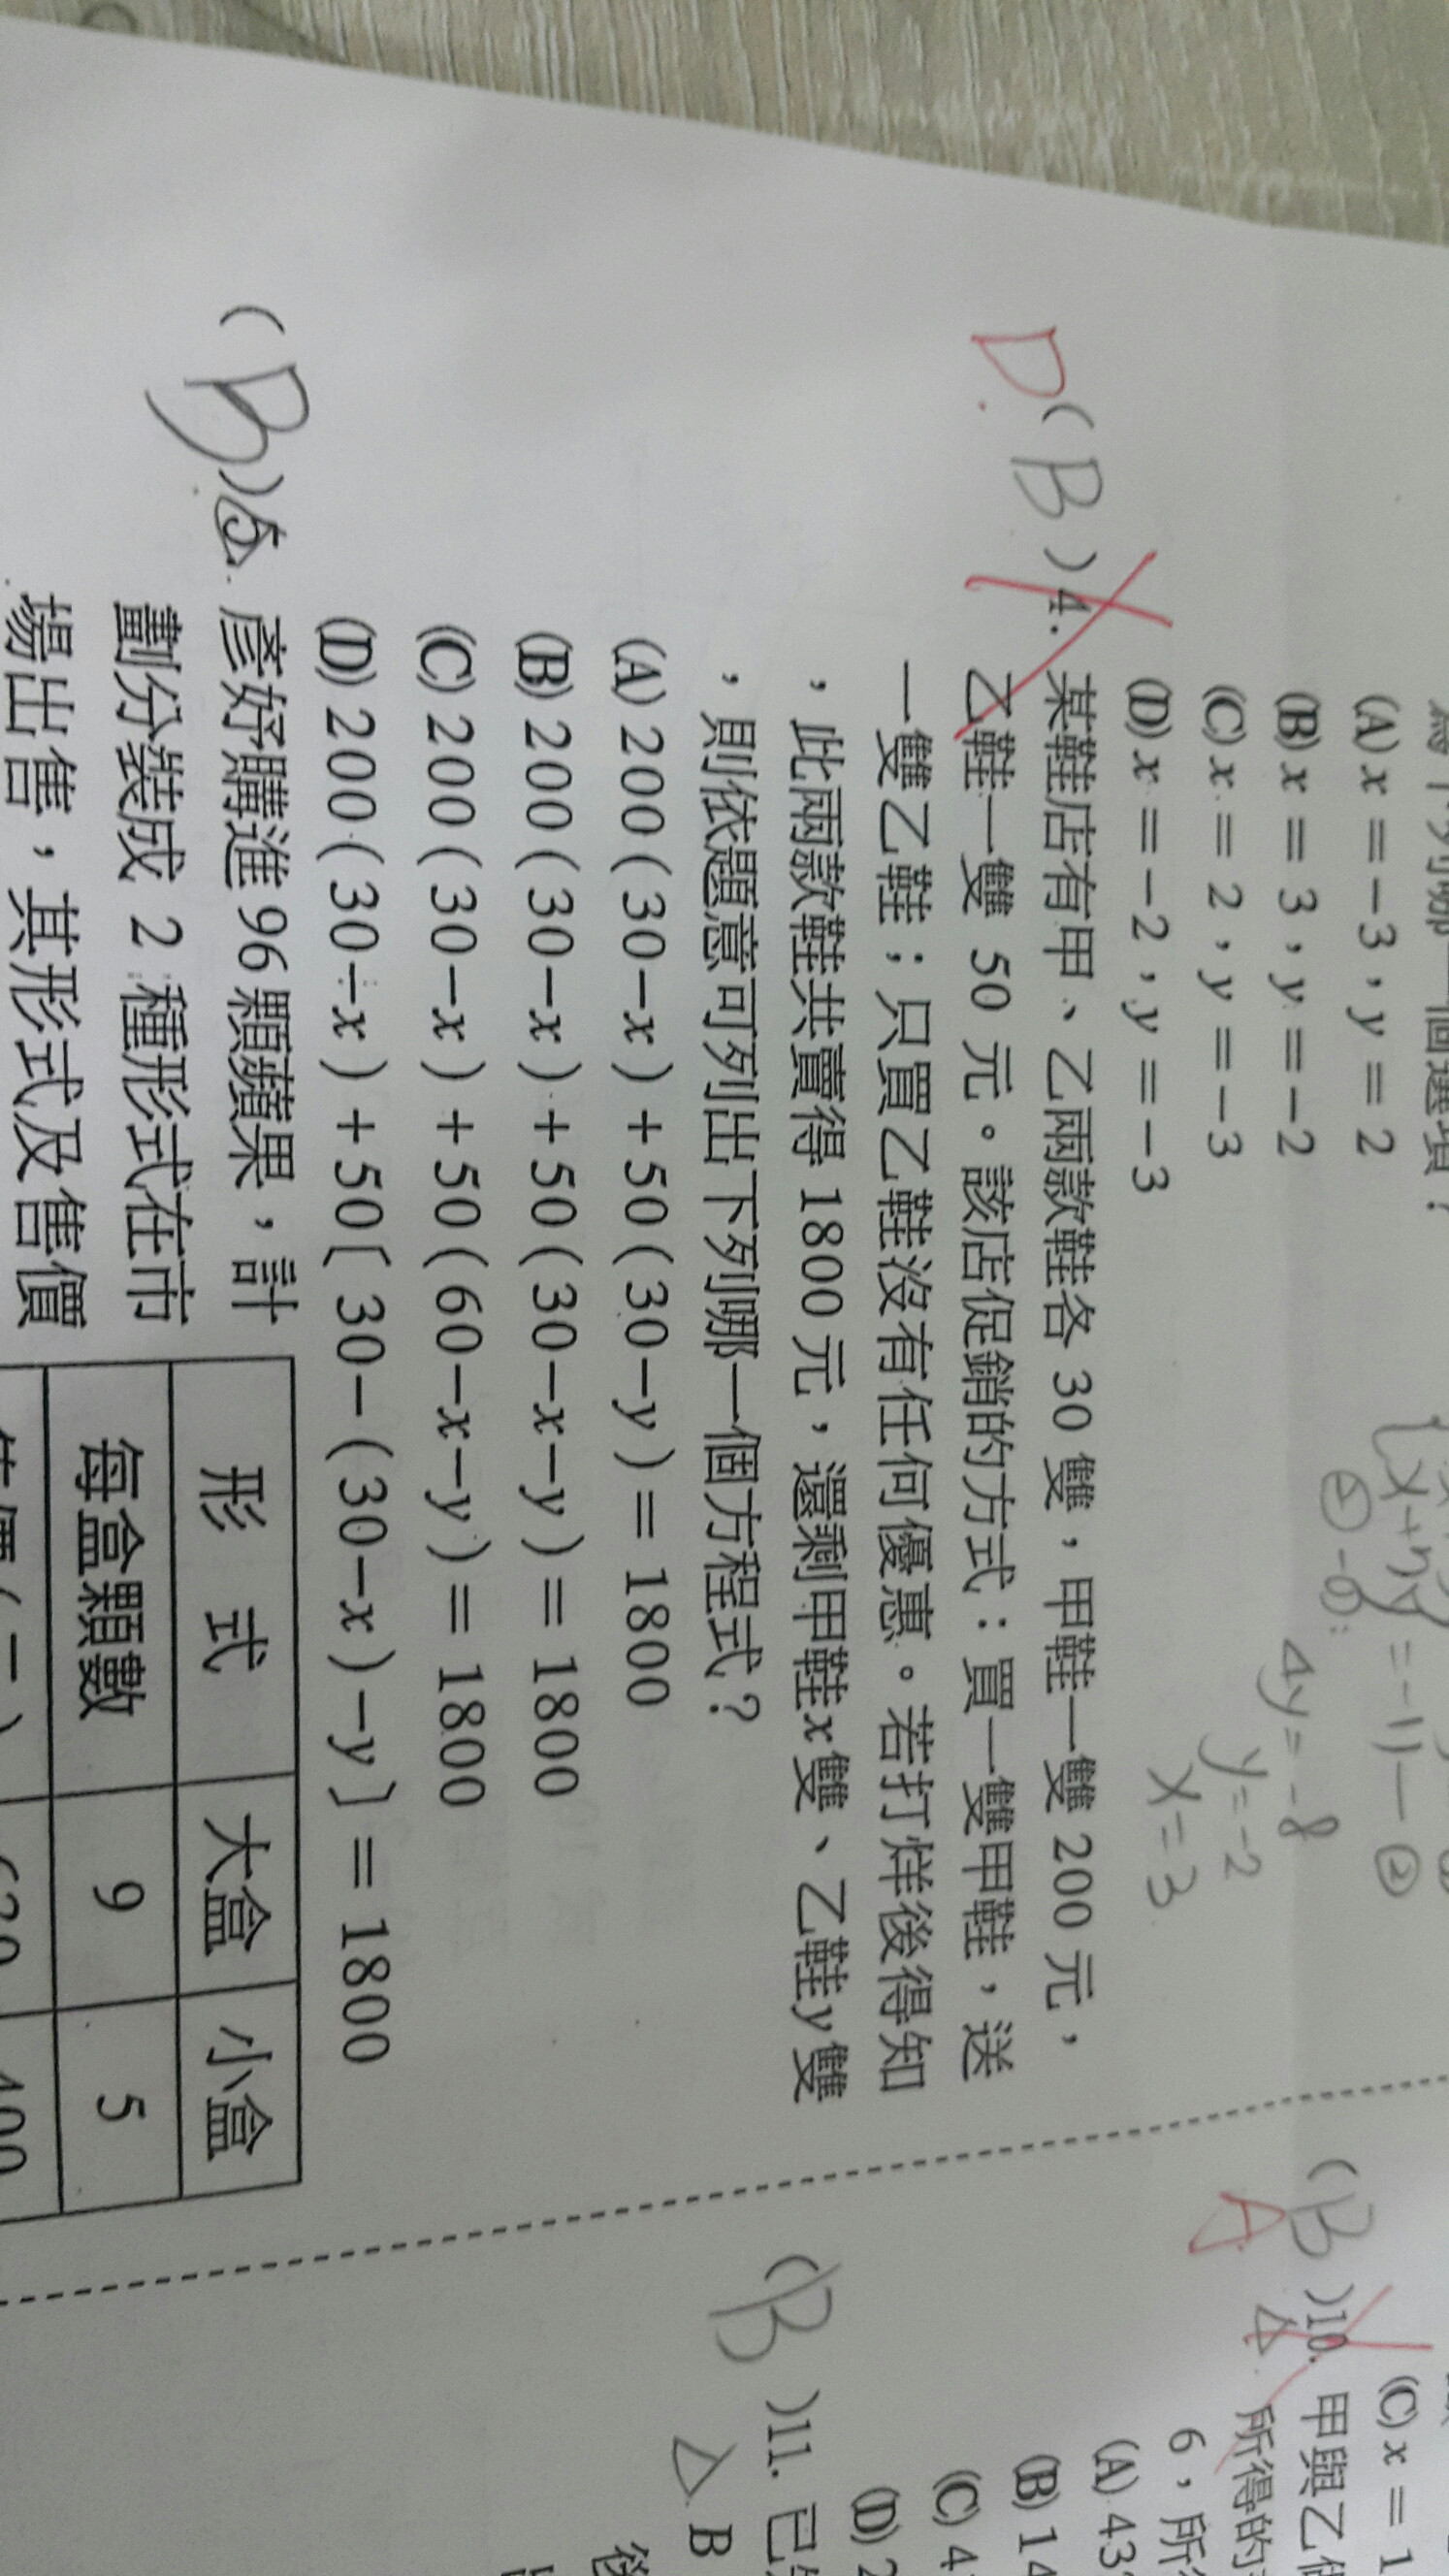 (A) x＝－3，y＝2
(B) x＝3，y＝－2
(C) x＝2，y＝－3
(D) x＝－2，y＝－3
4y=-8
y=-2
x=3
D.
( B )4. 某鞋店有甲、乙兩款鞋各 30 雙，甲鞋一雙 200 元，
乙鞋一雙 50 元。該店促銷的方式：買一雙甲鞋，送
一雙乙鞋；只買乙鞋沒有任何優惠。若打烊後得知
，此兩款鞋共賣得 1800 元，還剩甲鞋x雙、乙鞋y雙
，則依題意可列出下列哪一個方程式？
(A) 200（30－x）＋50（30－y）＝1800
(B) 200（30－x）＋50（30－x－y）＝1800
(C) 200（30－x）＋50（60－x－y）＝1800
(D) 200（30－x）＋50〔30－（30－x）－y〕＝1800
( B )5. 彥妤購進 96 顆蘋果，計
劃分裝成 2 種形式在市
場出售，其形式及售價
形 式 大盒 小盒
每盒顆數 9 5
(C) x＝1
( B )10. 甲與乙
A
△ 所得的
6，所
(A) 43
(B) 14
(C) 4
(D) 2
( B )11. 已
△ B